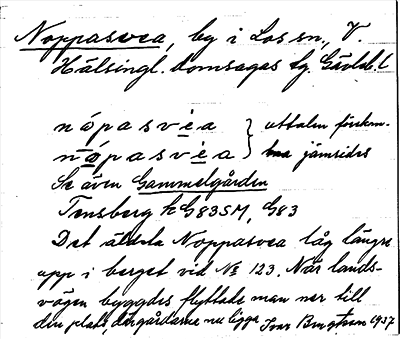 Noppasvea, by i Los sn., V.
Hälsingl. domsagas tg. Gävleb. l
nópasvéa } uttalen förekom-
nópasvéa } jämsides
Se även Gammelgården
Tensberg k G83SM, G83
Det äldsta Noppasvea låg längre
upp i berget vid No 123. När lands-
vägen byggdes flyttade man ner till
den plats, där gårdarna nu ligga Ivar Bengtson 1937